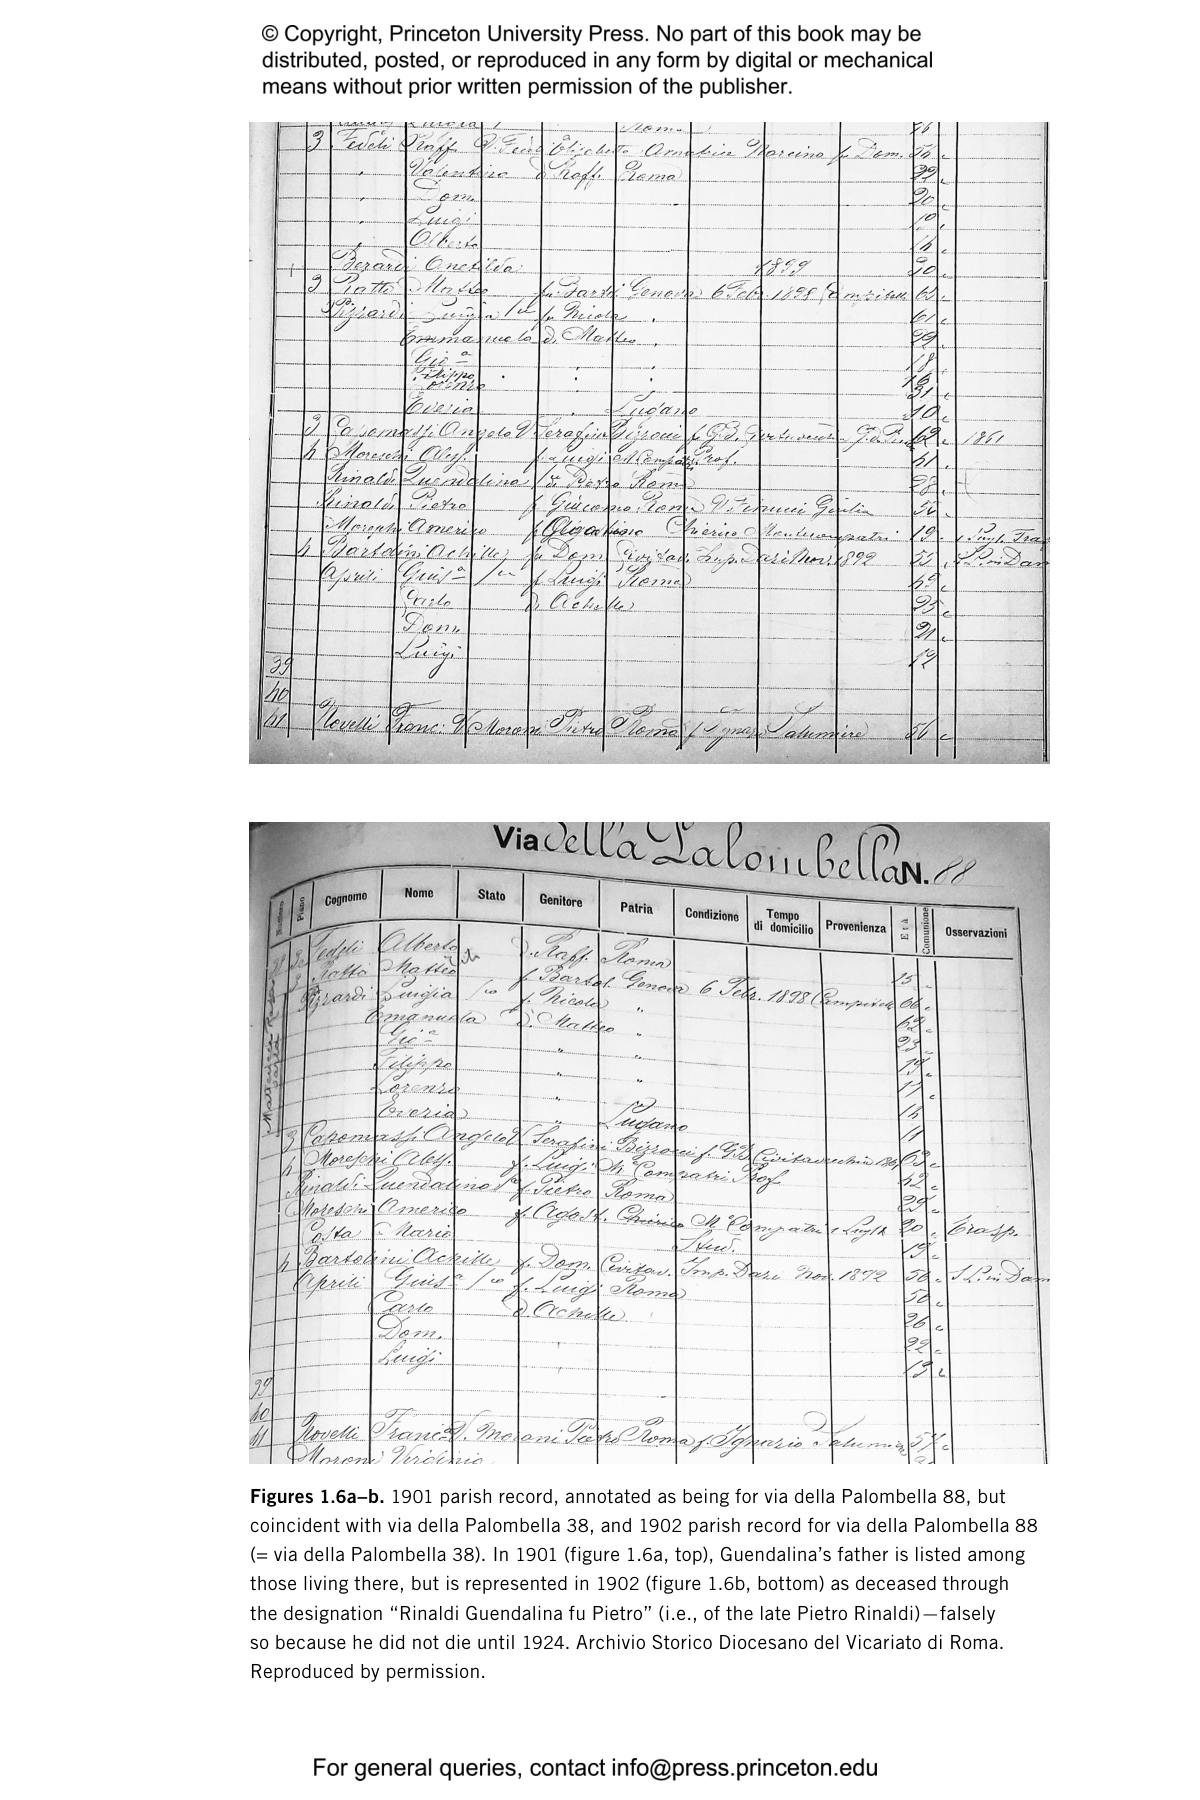 © Copyright, Princeton University Press. No part of this book may be
distributed, posted, or reproduced in any form by digital or mechanical
means without prior written permission of the publisher.
3 Fedeli Raff. Elisabetta Narcina f. Dom.
Valentino d. Raff. Roma 22
Dom. 20
Luigi 19
Alberto 14
Berardi Anetilda 1899 30
3 Ratto Matteo fu Bart. Genova 6 Febr. 1898 65
Pizzardi Luigia fu Nicola 61
Emmanuela d. Matteo 22
Gio.a 18
Filippo 16
Lorenzo
Everia Lugano 10
3 Capomassi Angelo V. Serafini Bizzoni f. G.B. 62 1861
4 Moreschi Aless. f. Luigi M. Compatri Prof. 41
Rinaldi Guendalina f. Pietro Roma 28
Rinaldi Pietro f. Giacomo Roma V. Finucci Giulia
Moreschi Americo f. Agostino Chierico Montecompatri 19
4 Bartolini Achille fu Dom. Civitav. Imp. Dazi Nov. 1892 55
Aprili Gius.a f. Luigi Roma 49
Carlo d. Achille 25
Dom. 21
Luigi 12
39
40
41 Novelli Franc. V. Moroni Pietro Roma f. Ignazio Salumiere 56
Via della Palombella N. 88
Numero Piano Cognome Nome Stato Genitore Patria Condizione Tempo di domicilio Provenienza Età Comunione Osservazioni
Fedeli Alberto d. Raff. Roma 15
Ratto Matteo f. Bartol. Genova 6 Febr. 1898 66
Pizzardi Luigia f. Nicola " 62
Emanuela d. Matteo " 23
Gio.a " " 19
Filippo " " 17
Lorenzo " 14
Everia " Lugano 11
3 Capomassi Angelo V. Serafini Bizzoni f. G.B. Civitavecchia 63
4 Moreschi Aless. f. Luigi M. Compatri Prof. 42
Rinaldi Guendalina f. Pietro Roma 29
Moreschi Americo f. Agost. Chierico M. Compatri 20 Trasp.
Costa Mario Stud. 19
4 Bartolini Achille f. Dom. Civitav. Imp. Dazi Nov. 1892 56
Aprili Gius.a f. Luigi Roma 50
Carlo d. Achille 26
Dom. 22
Luigi 13
39
40
41 Novelli Franc. V. Moroni Pietro Roma f. Ignazio 57
Moroni Virginia
Figures 1.6a–b. 1901 parish record, annotated as being for via della Palombella 88, but
coincident with via della Palombella 38, and 1902 parish record for via della Palombella 88
(= via della Palombella 38). In 1901 (figure 1.6a, top), Guendalina’s father is listed among
those living there, but is represented in 1902 (figure 1.6b, bottom) as deceased through
the designation “Rinaldi Guendalina fu Pietro” (i.e., of the late Pietro Rinaldi)—falsely
so because he did not die until 1924. Archivio Storico Diocesano del Vicariato di Roma.
Reproduced by permission.
For general queries, contact info@press.princeton.edu